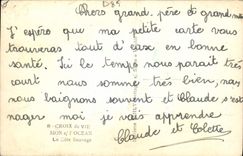 D85
Chers grand-père et grand-mère
J'espère que ma petite carte vous
trouveras tout d'eux en bonne
santé. Ici le temps nous parait très
court nous somme très bien, nay
nous baignons souvent et Claude s'est
nager moi je vais apprendre
Claude et Colette
6 - CROIX DE VIE
MON s/ L'OCEAN
La Côte Sauvage